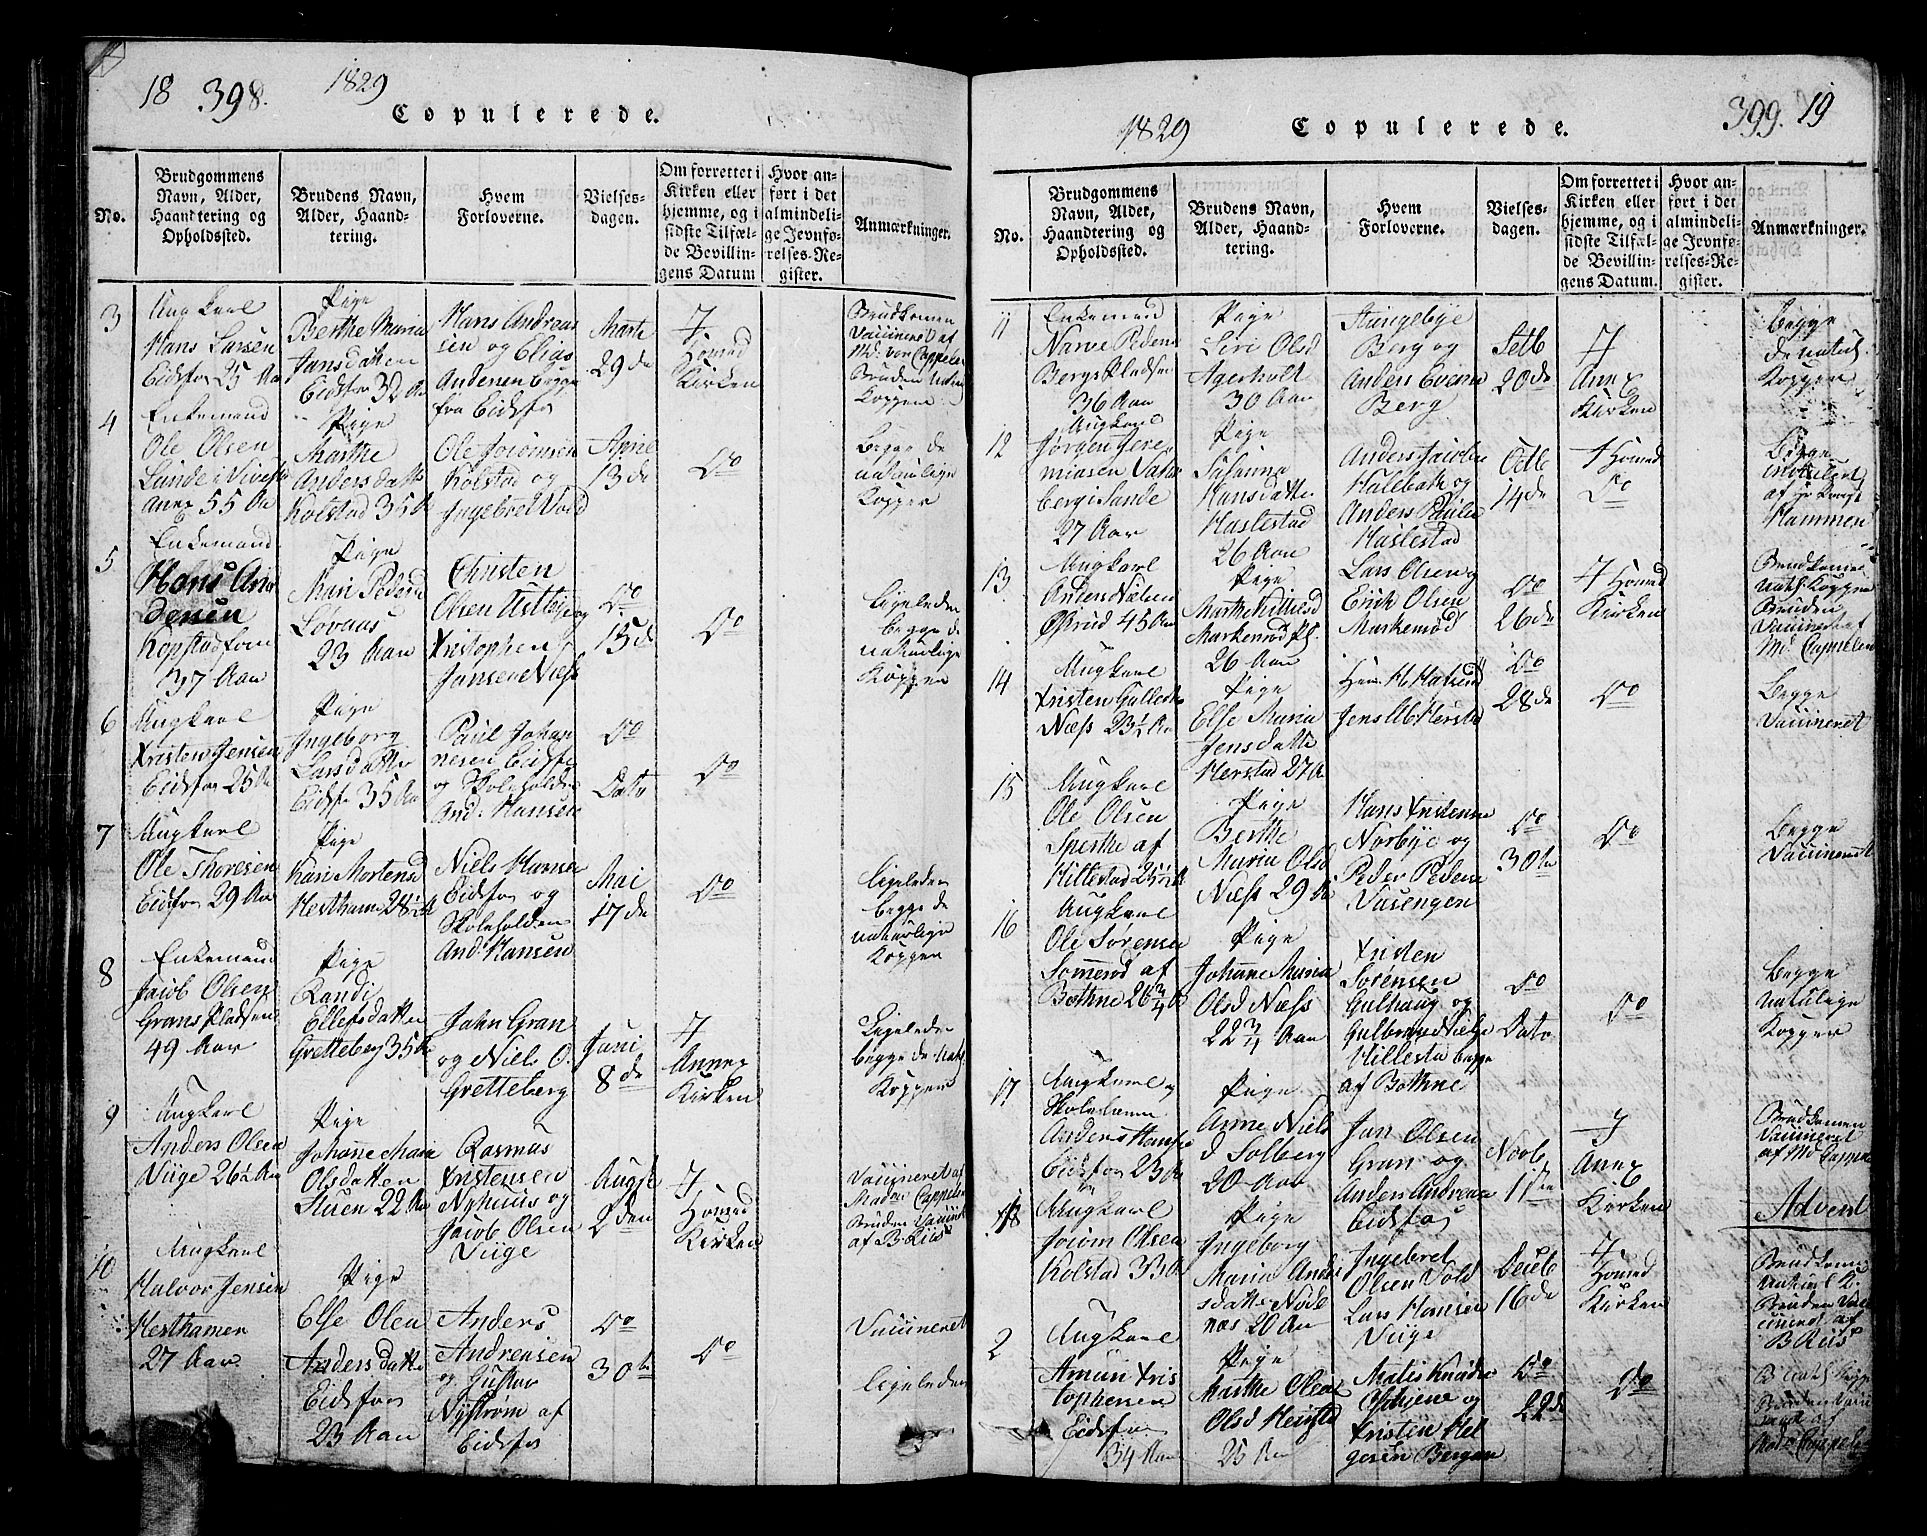 18 398.
1829
Copulerede.
No.
Brudgommens Navn, Alder, Haandtering og Opholdssted.
Brudens Navn, Alder, Haandtering.
Hvem Forloverne.
Vielsesdagen.
Om forrettet i Kirken eller hjemme, og i sidste Tilfælde Bevillingens Datum
Hvor anført i det almindelige Jevnførelses-Register.
Anmærkninger.
3
Ungkarl
Hans Larsen
Eidsfos 25 Aar
Pige
Berthe Maria
Jansdatter
Eidsfos 32 Aar
Hans Andreas
sen og Elias
Andersen begge
fra Eidsfos
Marts
29de
I
Hoved
Kirken
Brudkomen
Vaccineret af
Md. von Cappelen
Bruden
Kopper
4
Enkemand
Ole Olsen
Lunde i
Annex 55 Aar
Pige
Marthe
Andersdatter
Kolstad 35 Aar
Ole
Kolstad og
Ingebret Vold
April
13de
Do
Begge de
naturlige
Kopper
5
Enkemand
Hans An
dersen
Kopstad
37 Aar
Pige
Mari Peders
Lovaas
23 Aar
Christen
Olsen
Kristopher
Jansen Næss
Do
15de
Do
Ligeleden
begge de
naturlige
Kopper
6
Ungkarl
Kristen Jensen
Eidsfos 25 Aar
Pige
Ingeborg
Larsdatter
Eidsfos 35 Aar
Paul Johan
nesen Eidsfos
og Skoleholder
And. Hansen
Do
Dato
Do
7
Ungkarl
Ole Thoresen
Eidsfos 29 Aar
Pige
Kari Mortensd
Hesthamer 28½
Niels
Eidsfos og
Skoleholder
And. Hansen
Mai
17de
Do
Ligeleden
begge de
naturlige
Kopper
8
Enkemand
Jacob Olsen
Grans Pladsen
49 Aar
Pige
Randi
Ellefsdatter
Gretteberg 35 Aar
John Gran
og Niels O.
Gretteberg
Juni
8de
I
Annex
Kirken
Ligeleden
begge de nat.
Kopper
9
Ungkarl
Anders Olsen
Viige 26½ Aar
Pige
Johanne Marie
Olsdatter
Stuen 22 Aar
Rasmus
Kristensen
Nyhuus og
Jacob Olsen
Viige
August
2den
I
Hoved
Kirken
Vaccineret af
Madm Cappelen
Bruden Vaccinet
af B. Riis
10
Ungkarl
Halvor Jensen
Hesthamer
27 Aar
Pige
Else Olea
Andersdatter
Eidsfos
23 Aar
Anders
Andreasen
og Gustav
Nystrøm af
Eidsfos
Do
30te
Do
Vaccineret
Ligeleden
1829
Copulerede.
399. 19
No.
Brudgommens Navn, Alder, Haandtering og Opholdssted.
Brudens Navn, Alder, Haandtering.
Hvem Forloverne.
Vielsesdagen.
Om forrettet i Kirken eller hjemme, og i sidste Tilfælde Bevillingens Datum.
Hvor anført i det almindelige Jevnførelses-Register.
Anmærkninger.
11
Enkemand
Narve Peders
Bergs Pladsen
36 Aar
Pige
Siri Olsd
Agerholt
30 Aar
Berg og
Anders Evens
Berg
20de
I
Annex
Kirken
Begge
de naturl.
Kopper
12
Ungkarl
Jørgen Jere
miasen
berg i Sande
27 Aar
Pige
Susanna
Hansdatter
Haslestad
26 Aar
Anders Jacobsen
og
Anders Paulsen
Haslestad
Octb
14de
I Hoved
Do
Begge
af
Hammen
13
Ungkarl
Anders Nielsen
Østrud 45 Aar
Pige
Marthe
Markerød Pl.
26 Aar
Lars Olsen og
Erik Olsen
Markerød
Do
26de
I Hoved
Kirken
Brudkomen
nat. Kopper
Bruden
Vaccineret af
Md. Cappelen
14
Ungkarl
Kristen
Næss 23½ Aar
Pige
Else Maria
Jensdatter
Herstad 27 A
Jens
Herstad
Do
28de
Do
Begge
Vaccineret
15
Ungkarl
Ole Olsen
af
Hillestad
Pige
Berthe
Maria Olsd
Næss 29 Aar
Hans Kristensen
Norbye og
Peder Pedersen
Vasengen
Do
30te
Do
Begge
Vaccineret
16
Ungkarl
Ole Sørensen
Sommerød af
Bothne 26¾
Pige
Johanne Maria
Olsd Næss
22¾ Aar
Kristen
Sørensen
Gulhaug og
Gulbrand Niels
Hillestad begge
af Bothne
Do
Dato
Do
Begge
naturlige
Kopper
17
Ungkarl og
Skolelærer
Anders Hansen
Eidsfos 23 Aar
Pige
Anne Niels
d Solberg
20 Aar
Jan Olsen
Gran og
Anders Andreas
Eidsfos
Novb
17de
I
Annex
Kirken
Brudkomen
Vaccineret
af Md Cappelen
Advent
18
Ungkarl
Joiom Olsen
Kolstad 33 Aar
Pige
Ingeborg
Maria Ander
sdatter
20 Aar
Ingebret
Olsen Vold
Lars Hansen
Viige
Decb
16de
I
Hoved
Kirken
Brudkomen
naturl K.
Bruden Vac
cineret af
B Riis
2
Ungkarl
Amun Kris
tophersen
Eidsfos
34 Aar
Pige
Marthe Olea
Olsd
25 Aar
og
Kristen Hel
gesen Bergan
Do
22de
Do
B nat. Kopp
Bruden Vacci
neret af
Mad. Cappelen